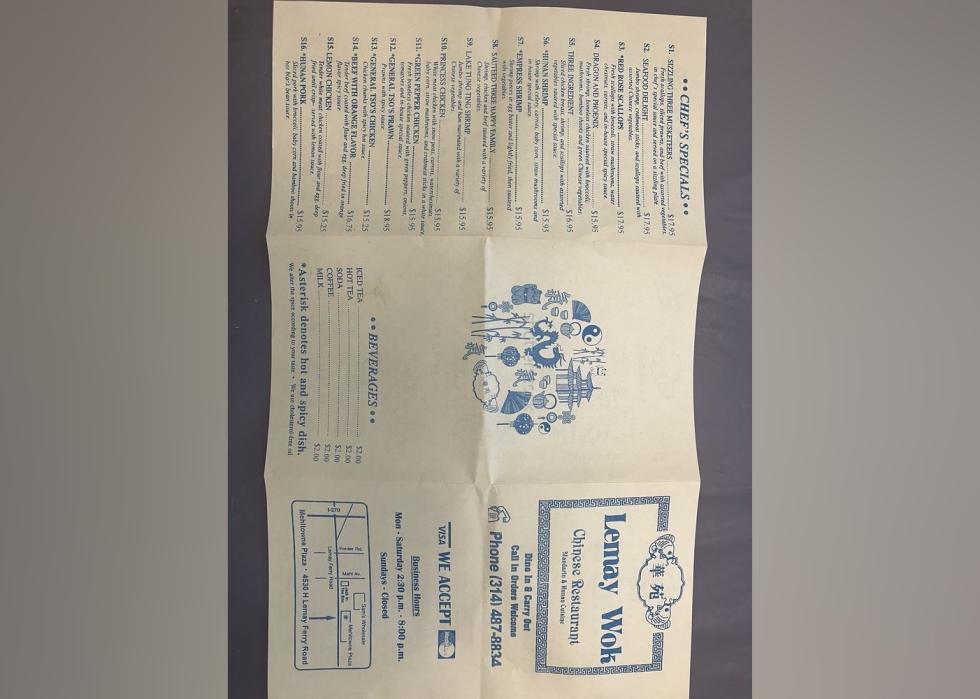 • • CHEF'S SPECIALS • •
S1. SIZZLING THREE MUSKETEERS $17.95
Fresh scallops, sliced prawns, and beef with assorted vegetables,
in chef's special sauce and served on a sizzling plate.
S2. SEAFOOD DELIGHT $17.95
Jumbo shrimp, crabmeat sticks, and scallops sauteed with
assorted vegetables.
S3. *RED ROSE SCALLOPS $17.95
Fresh scallops with broccoli, straw mushrooms, water
chestnuts, carrots, and in-house special spicy sauce.
S4. DRAGON AND PHOENIX $15.95
Fresh shrimp, boneless chicken sauteed with broccoli,
mushrooms, bamboo shoots and green Chinese vegetables.
S5. THREE INGREDIENT $16.95
Sliced chicken, shrimp, and scallops with assorted
vegetables sauteed with special sauce.
S6. *HUNAN SHRIMP $15.95
Shrimp with celery, carrots, baby corn, straw mushrooms and
in-house sauce.
S7. *EMPRESS SHRIMP $15.95
Shrimp pieces in egg batter and lightly fried, then sauteed
with vegetables.
S8. SAUTEED THREE HAPPY FAMILY $15.95
Shrimp, chicken and beef sauteed with a variety of
Chinese vegetables.
S9. LAKE TUNG TING SHRIMP $15.95
Jumbo shrimp and ham marinated with a variety of
Chinese vegetables.
S10. PRINCESS CHICKEN $15.95
White meat chicken with snow peas, carrots, waterchestnuts,
baby corn, straw mushrooms, and crabmeat sticks in a white sauce.
S11. *GREEN PEPPER CHICKEN $15.95
Fresh boneless chicken sauteed with green peppers, onions,
tomatoes and in-house special sauce.
S12. *GENERAL TSO'S PRAWN $18.95
Prawns with spicy sauce.
S13. *GENERAL TSO'S CHICKEN $15.25
Chicken chunks with spicy hot sauce.
S14. *BEEF WITH ORANGE FLAVOR $16.75
Tender beef coated with flour and egg, deep fried in orange
flavor spicy sauce.
S15. LEMON CHICKEN $15.25
Tender white meat chicken coated with flour and egg, deep
fried until crisp - served with lemon sauce.
S16. *HUNAN PORK $15.95
Sliced pork with broccoli, baby corn and bamboo shoots in
hot black bean sauce.
• • BEVERAGES • •
ICED TEA $2.00
HOT TEA $2.00
SODA $2.00
COFFEE $2.00
MILK $2.00
*Asterisk denotes hot and spicy dish.
We alter the spice according to your taste • We use cholesterol-free oil
華苑
Lemay Wok
Chinese Restaurant
Mandarin & Hunan Cuisine
Dine In & Carry Out
Call In Orders Welcome
Phone (314) 487-8834
VISA WE ACCEPT
Business Hours
Mon - Saturday 2:30 p.m. - 8:00 p.m.
Sundays - Closed
I-270
Forder Rd.
Lemay Ferry Road
Mehl Av.
Sam's Wholesale
Mehltowne Plaza
Mehltowne Plaza • 4530 H Lemay Ferry Road